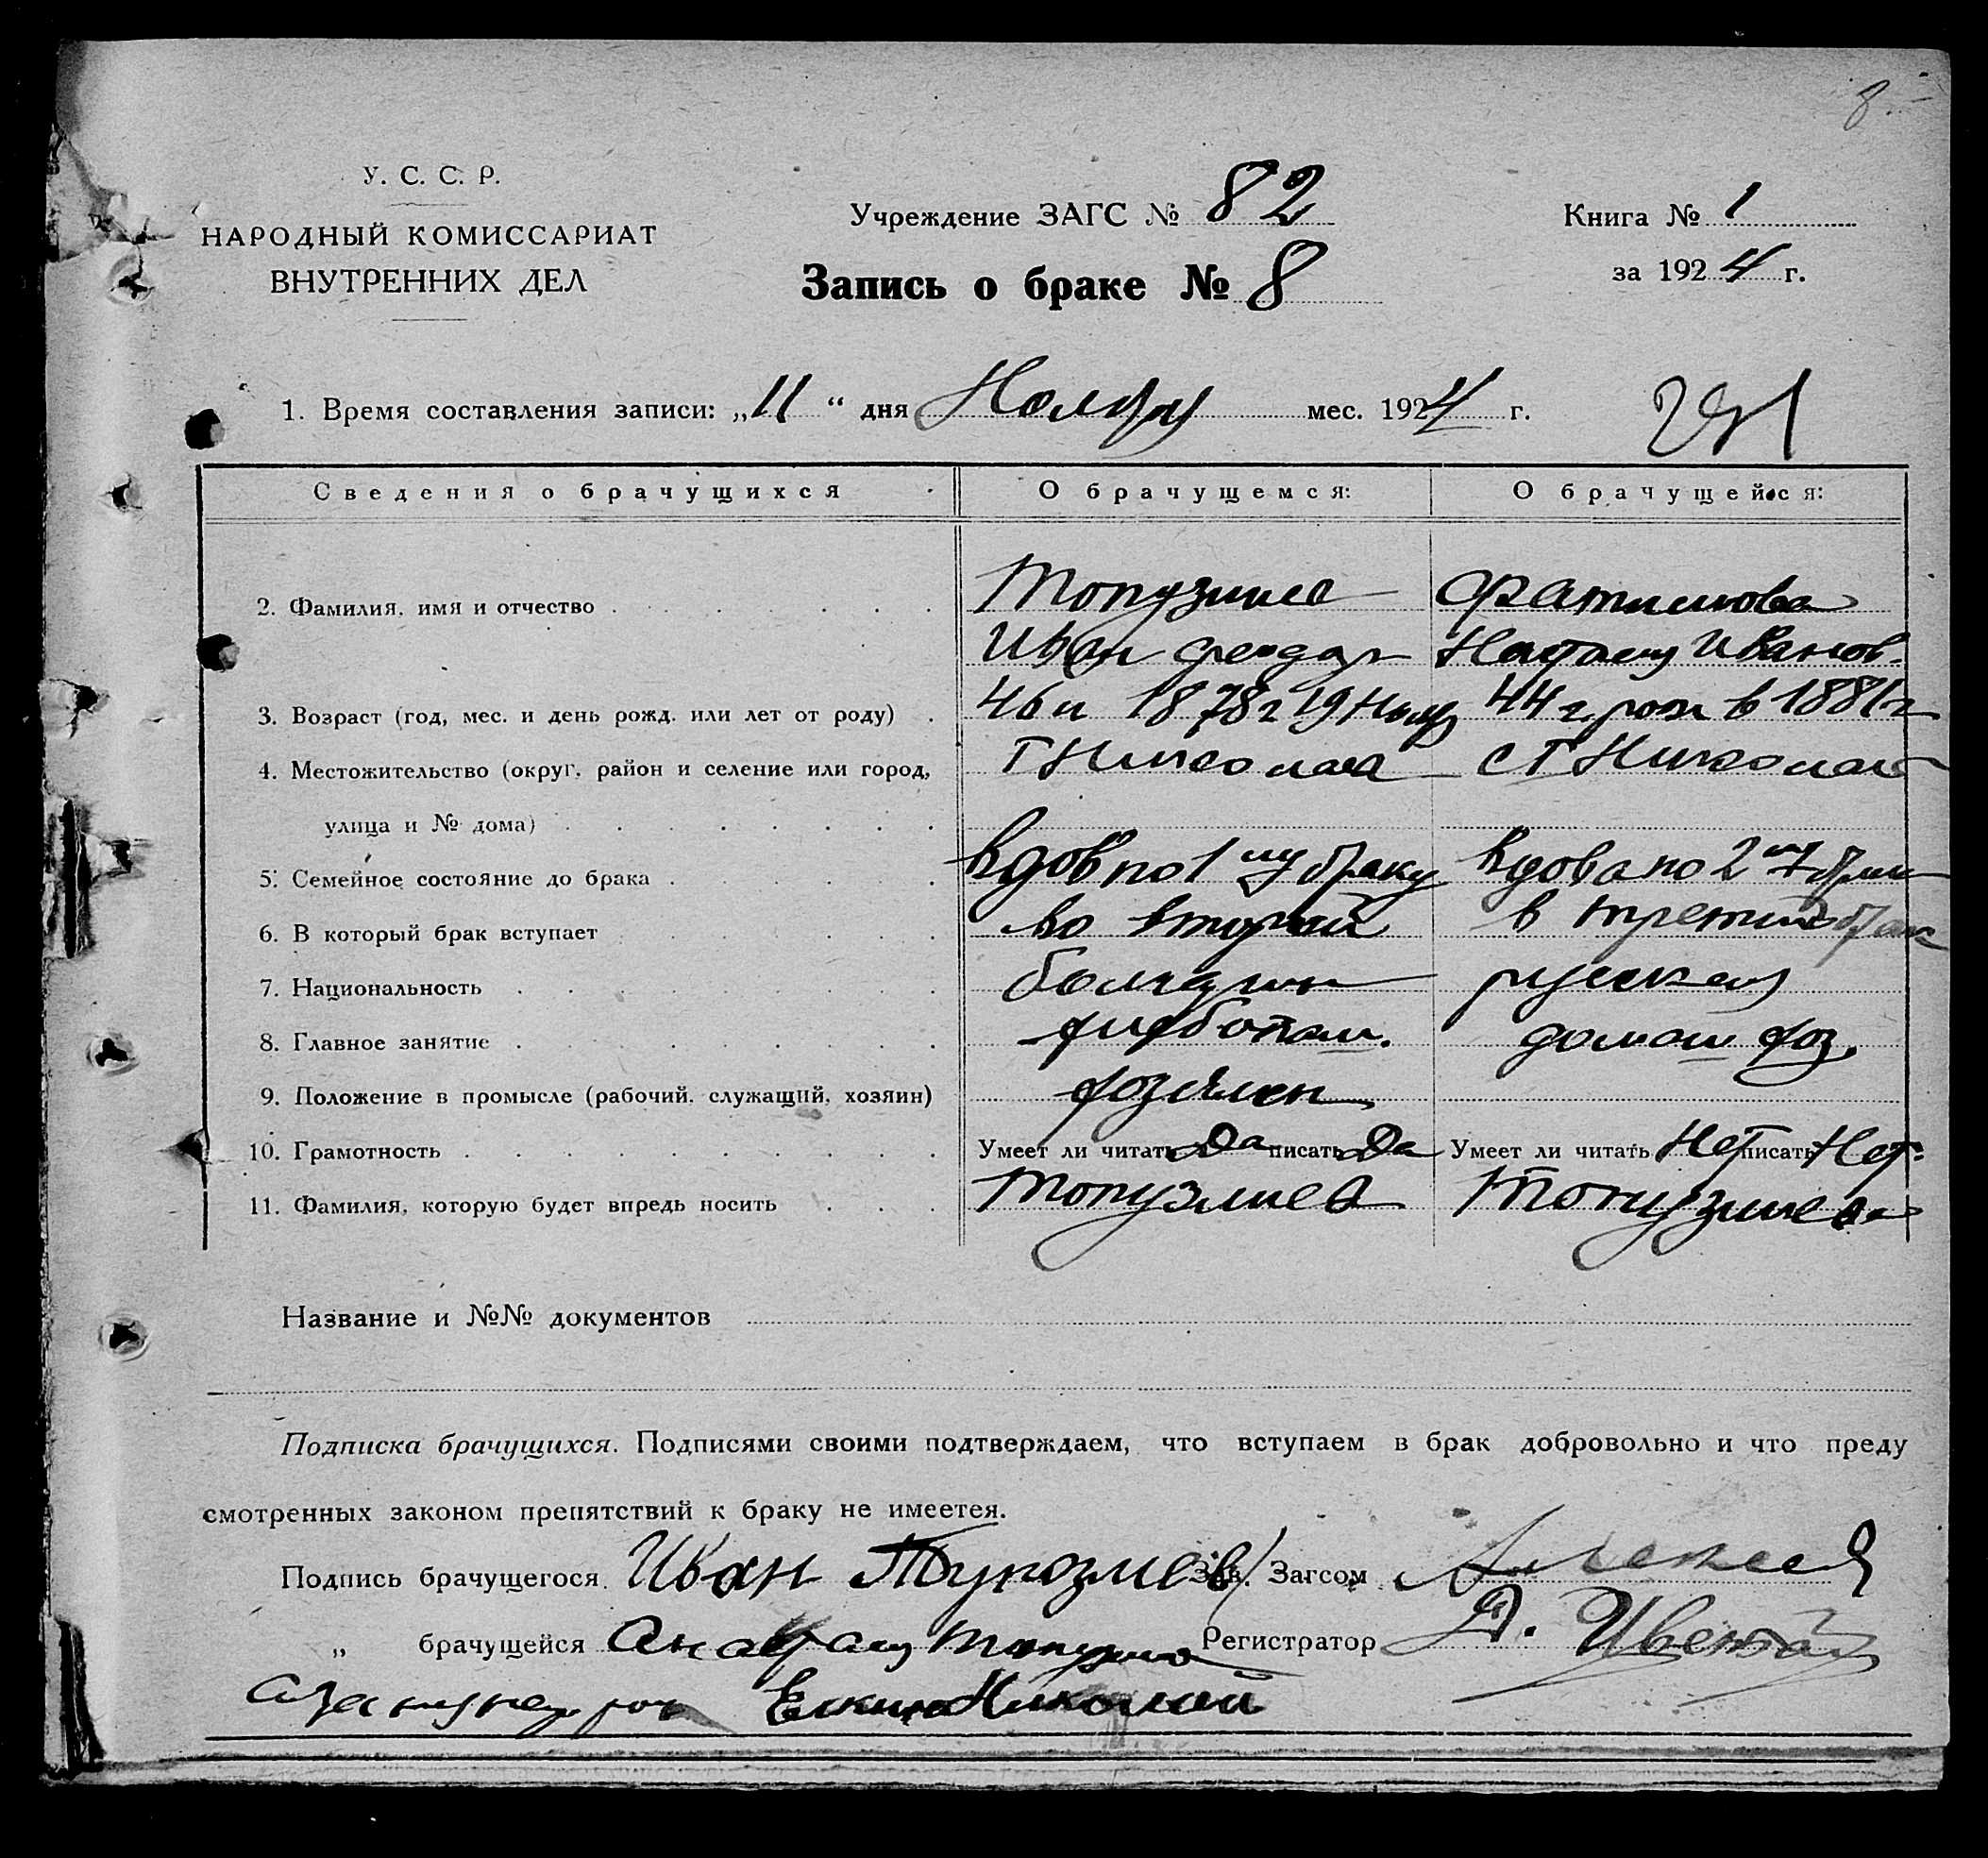 8.
У. С. С. Р.
НАРОДНЫЙ КОМИССАРИАТ
ВНУТРЕННИХ ДЕЛ
Учреждение ЗАГС № 82
Запись о браке № 8
Книга № 1
за 1924 г.
1. Время составления записи: „11“ дня Ноября мес. 1924 г.
Сведения о брачущихся О брачущемся: О брачущейся:
2. Фамилия, имя и отчество Топузлиев
Иван Настасия Иванов.
3. Возраст (год, мес. и день рожд. или лет от роду) 46 л 1878 г 19 44 г. рож в 1881 г
4. Местожительство (округ, район и селение или город, Николаев с Г Николаев
улица и № дома)
5. Семейное состояние до брака Вдов по 1 му браку Вдова по 2 му
6. В который брак вступает во второй в третий брак
7. Национальность болгарин русская
8. Главное занятие хлебопаш. домаш хоз.
9. Положение в промысле (рабочий, служащий, хозяин) хозяин
10. Грамотность Умеет ли читать Да писать Да Умеет ли читать Нет писать Нет.
11. Фамилия, которую будет впредь носить Топузлиев Топузлиева
Название и №№ документов
Подписка брачущихся. Подписями своими подтверждаем, что вступаем в брак добровольно и что преду
смотренных законом препятствий к браку не имеетея.
Подпись брачущегося Иван Зав. Загсом
„ брачущейся Регистратор Д.
Николай